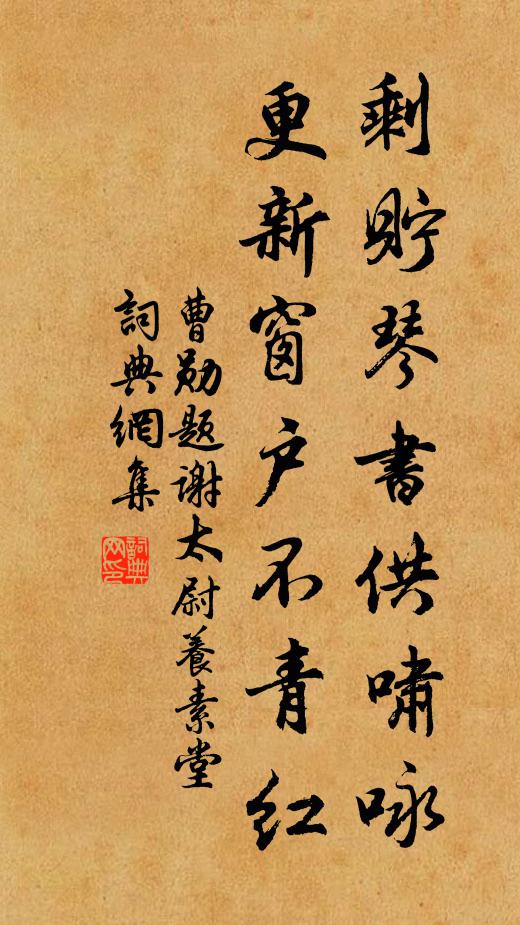 剩貯琴書供嘯咏
更新窗户不青红
曹勋题谢太尉養素堂
詞典網集
詞典網印